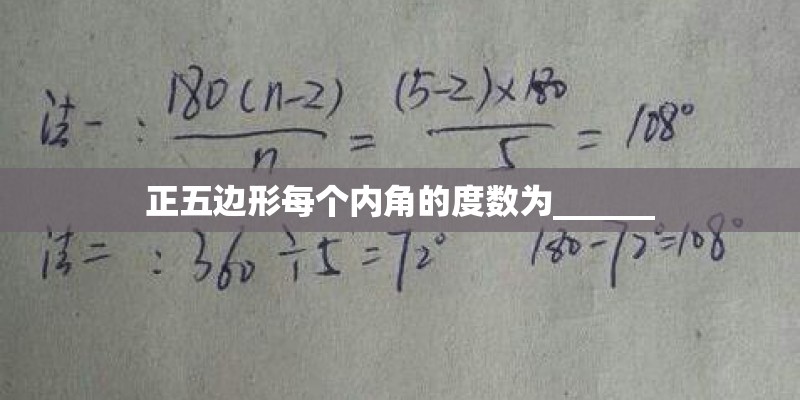 法一：180(n-2)/n = (5-2)×180/5 = 108°
正五边形每个内角的度数为______
法二：360÷5=72° 180-72°=108°